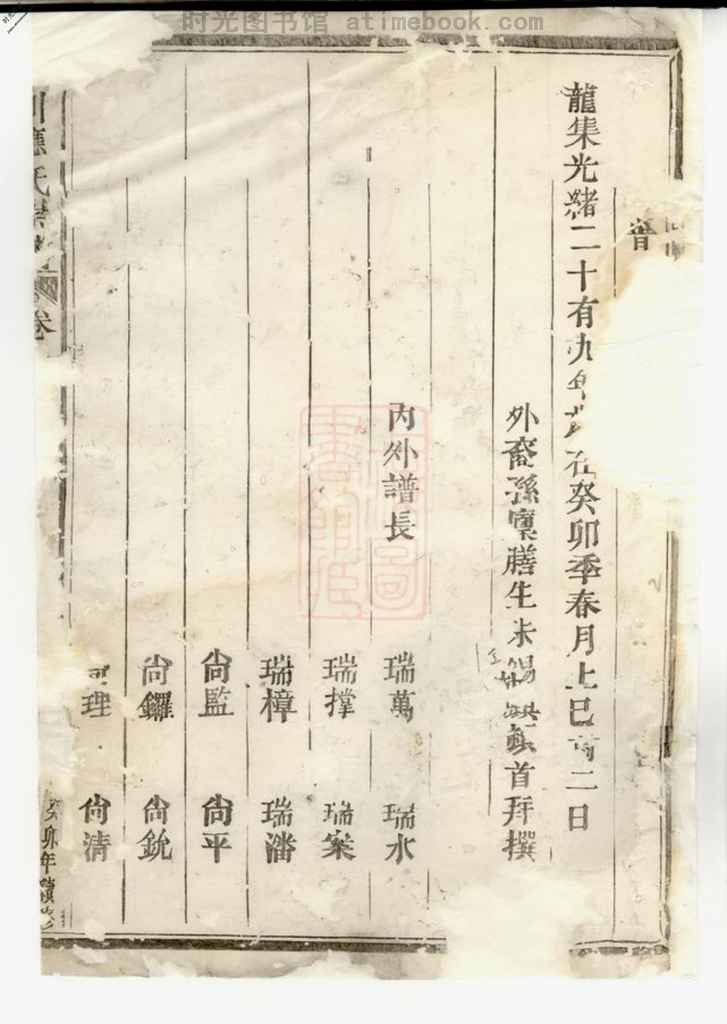 时光图书馆 atimebook.com
晉
龍集光緒二十有九年歲在癸卯季春月上巳前二日
外裔孫廩膳生朱錫 頓首拜撰
內外譜長
瑞萬 瑞水
瑞撑 瑞案
瑞樟 瑞潘
尙監 尙平
尙鑼 尙銃
理 尙清
應氏宗 卷
癸卯年續修